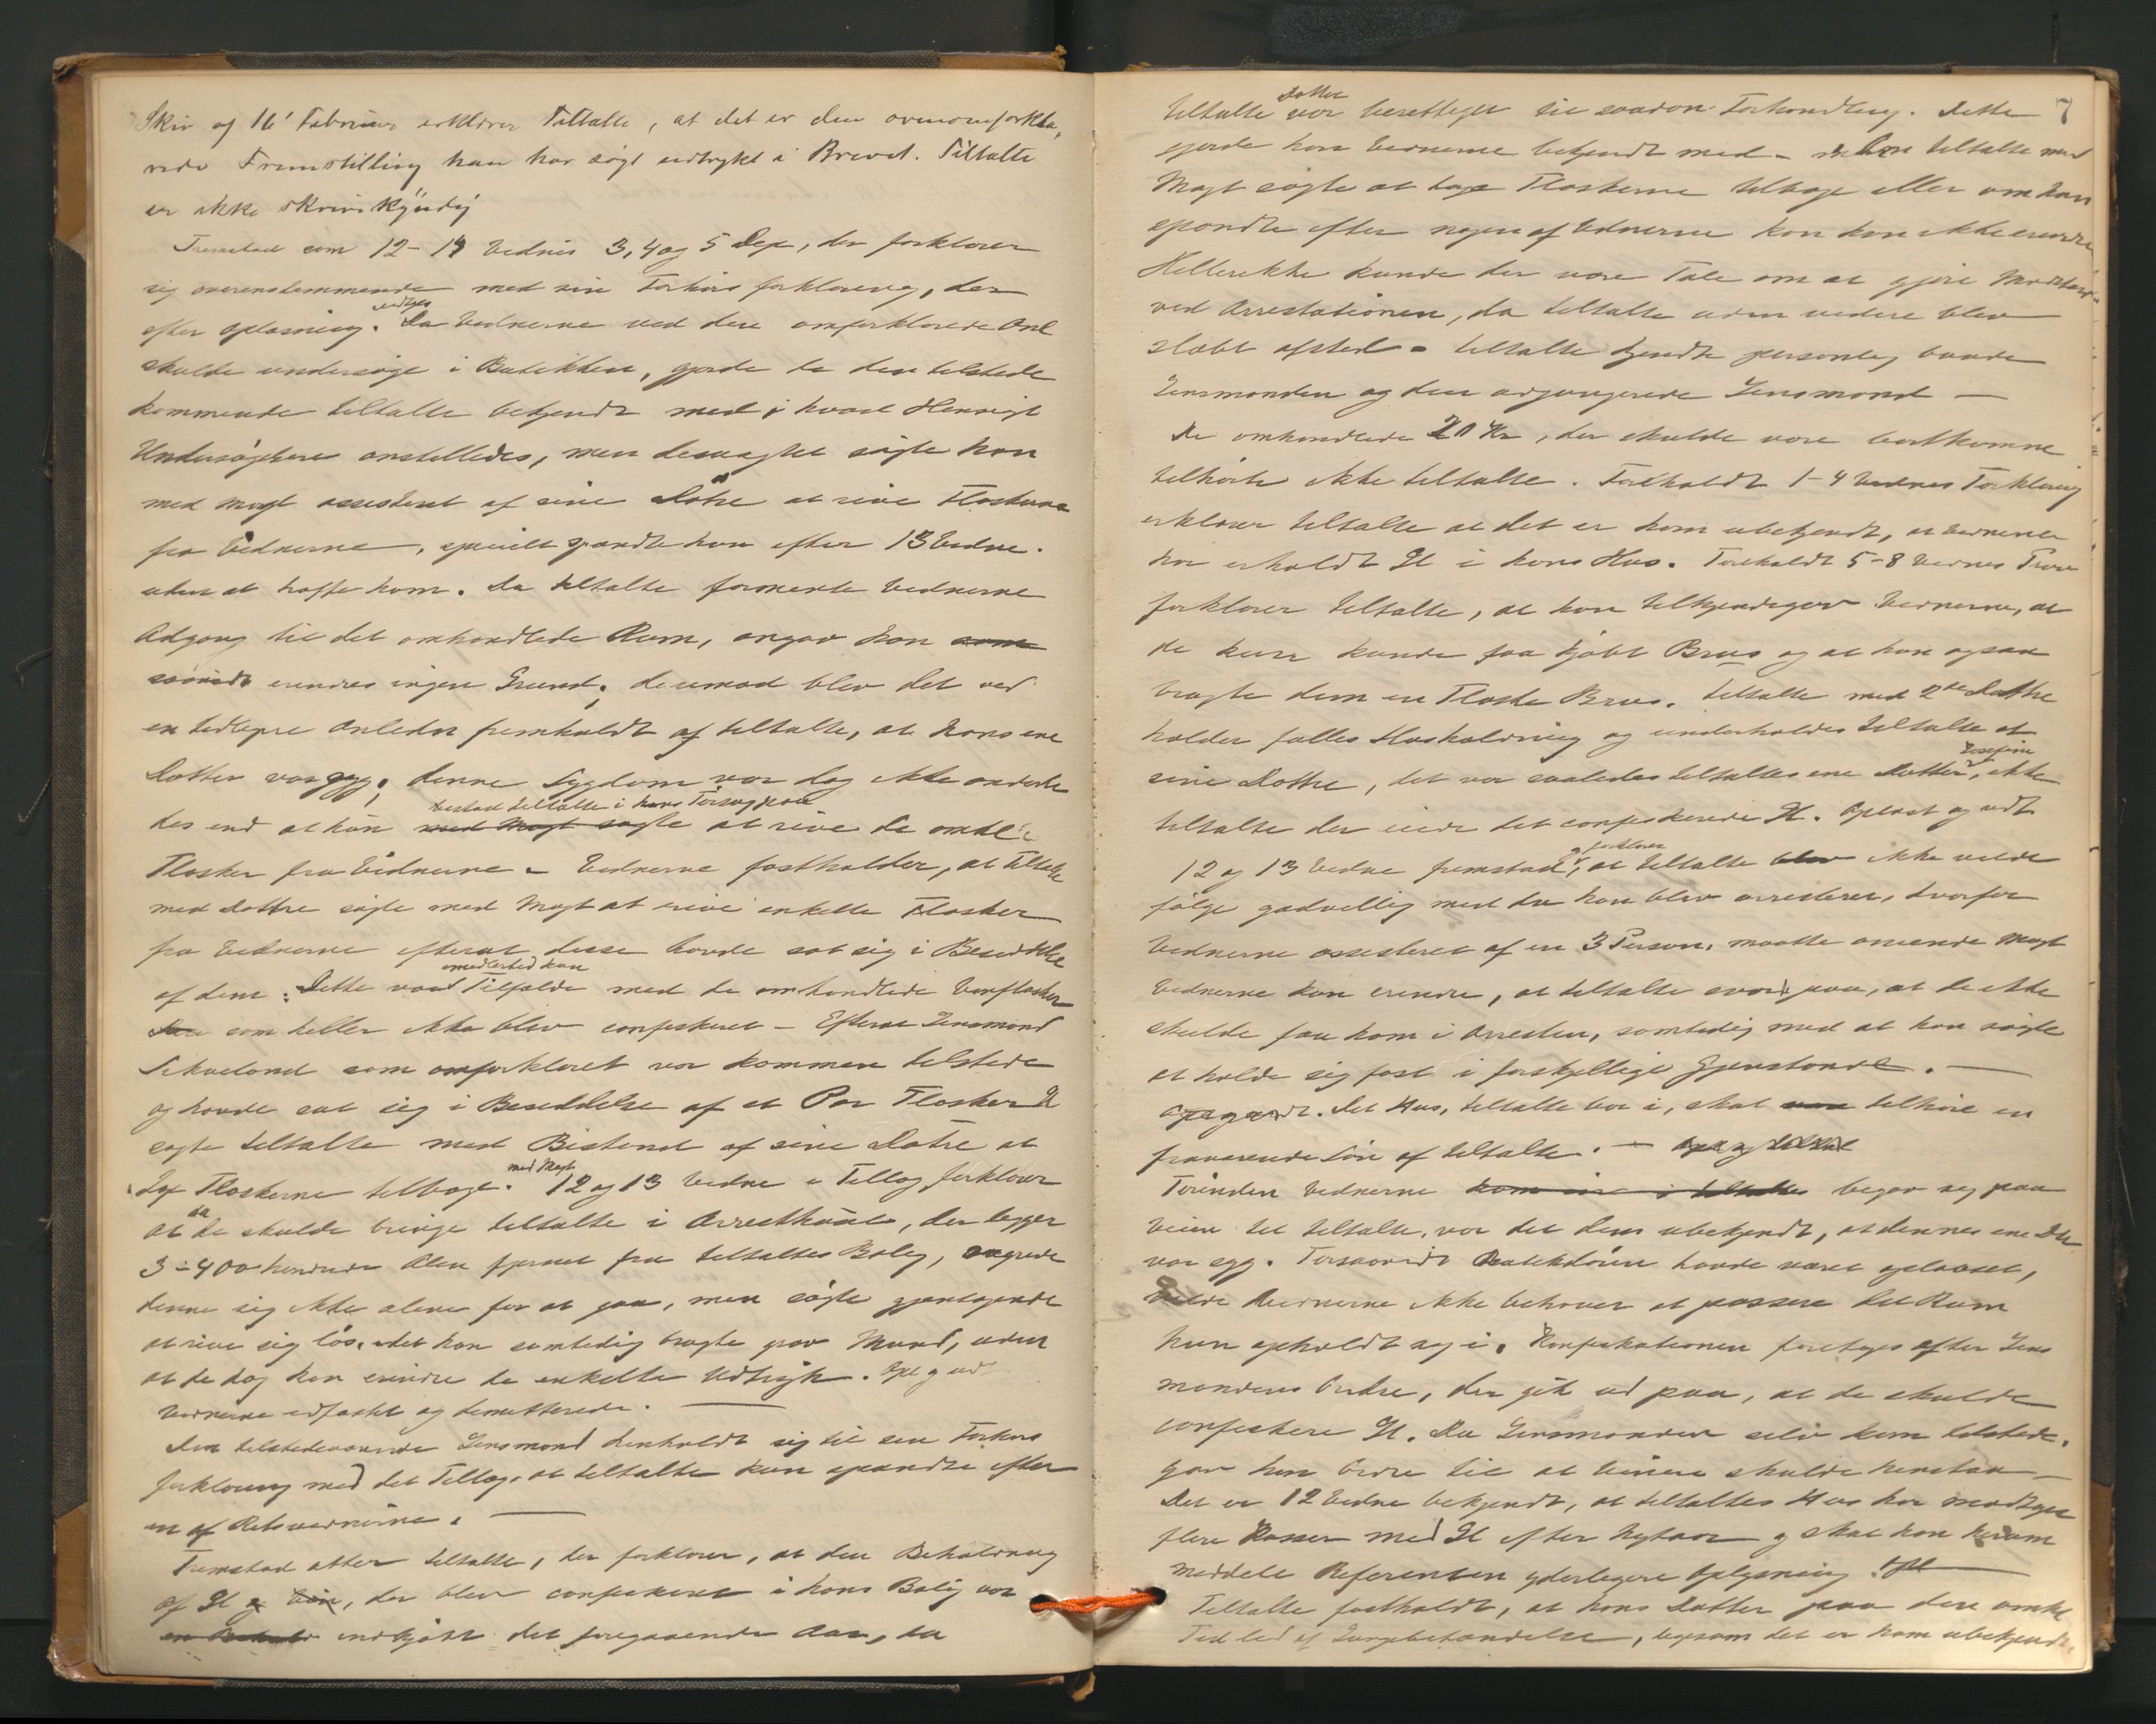 Skiv af 16' Februar erklærer Tiltalte, at det er den ovenomforkla-
rede Fremstilling han har søgt udtrykt i Brevet. Tiltalte
er ikke skrivekyndig
Fremstod som 12-14 Vidnes 3, 4 og 5 Dep, der forklarer
sig overensstemmende med sin Forhørs forklaring, der
efter Oplæsning vedtoges. Da Vidnerne ved den omforklarede Anl
skulde undersøge i Butikken, gjorde de den tilstede
kommende tiltalte bekjendt med i hvad Hensigt
Undersøgelsen anstilledes, men desuagtet søgte han
med Magt assisteret af sine Døtre at rive Flaskerne
fra Vidnerne, specielt spændte han efter 13 Vidne.
uden at træffe ham. Da tiltalte formente Vidnerne
Adgang til det omhandlede Rum, angav han
saavidt erindres ingen Grund, derimod blev det ved
en tidligere Anledn fremholdt af tiltalte, at hans ene
Datter var syg, denne Sygdom var dog ikke anderle
des end at hun bistod tiltalte i hans Forsøg paa at rive de omhl
Flasker fra Vidnerne - Vidnerne fastholder, at tiltalte
med Døttre søgte med Magt at rive enkelte Flasker
fra Vidnerne efterat disse havde sat sig i Besiddelse
af dem: Dette var imidlertid kun Tilfælde med de omhandlede Vinflasker
som heller ikke blev confiskeret - Efterat Lensmand
som omforklaret var kommen tilstede
og havde sat sig i Besiddelse af et Par Flasker Øl
søgte tiltalte med Bistand af sine Døtre at
Flaskerne tilbage med Magt. 12 og 13 Vidne i Tillæg forklarer
at da de skulde bringe tiltalte i Arresthuset, der ligger
3-400 hundrede Alen fjernet fra tiltaltes Bolig, vægrede
denne sig ikke alene for at gaa, men søgte gjentagende
at rive sig løs, idet han samtidig brugte grov Mund, uden
at de dog kan erindre de enkelte Udtryk. Opl og vedt
Vidnerne edfæstet og demitterede.
Den tilstedeværende Lensmand henholdt sig til sin Forhørs
forklaring med det Tillæg, at tiltalte kun spændte efter
en af Retsvidnerne.
Fremstod atter tiltalte, der forklarer, at den Beholdning
af Øl og Vin, der blev confiskeret i hans Bolig var
indkjøbt det foregaaende Aar, da
7
tiltalte Datter var berettiget til saadan Forhandling. Dette
gjorde han Vidnerne bekjendt med - Om tiltalte med
Magt søgte at tage Flaskerne tilbage eller om han
spændte efter nogen af Vidnerne kan han ikke erindre
Hellerikke kunde der være Tale om at gjøre Modstand
ved Arrestationen, da tiltalte uden videre blev
slæbt afsted - tiltalte kjendte personlig baade
Lensmanden og den adjungerede Lensmand -
De omhandlede 20 Kr, der skulde være bortkomne
tilhørte ikke tiltalte. Foreholdt 1-4 Vidnes Forklaring
erklærer tiltalte at det er ham ubekjendt, at Vidnerne
har erholdt Øl i hans Hus. Foreholdt 5-8 Vidnes Prov
forklarer tiltalte, at han tilkjendegav Vidnerne, at
de kun kunde faa kjøbt Brus og at han ogsaa
bragte dem en Flaske Brus. tiltalte med 2de Døttre
holder fælles Husholdning og underholdes tiltalte af
sine Døttre, det var saaledes tiltaltes ene Datter Josefine, ikke
tiltalte der eiede det confiskerede Øl. Oplæst og vedt
12 og 13 Vidne fremstod og forklarer, at tiltalte ikke vilde
følge godvillig med da han blev arresteret, hvorfor
Vidnerne assisteret af en 3 Person, maatte anvende Magt
Vidnerne kan erindre, at tiltalte svor paa, at de ikke
skulde faa ham i Arresten, samtidig med at han søgte
at holde sig fast i forskjellige Gjenstande. -
Det Hus, tiltalte bor i, skal tilhøre en
fraværende Søn af tiltalte. -
Førinden Vidnerne begav sig paa
Veien til tiltalte, var det dem ubekjendt, at dennes ene Dtr
var syg. Forsaavidt Butikdøren havde været oplaaset,
Vidnerne ikke behøver at passere det Rum
hun opholdt sig i. Konfiskationen foretoges efter Lens
mandens Ordre, der gik ud paa, at de skulde
confiskere Øl. Da Lensmanden selv kom tilstede,
gav han Ordre til at Vinen skulde henstaa -
Det er 12 Vidne bekjendt, at tiltaltes Hus har modtaget
flere Kasser med Øl efter Nytaar og skal han herom
meddele Referenten yderligere Oplysning. Opl
Tiltalte fastholdt, at hans Datter paa den omhl
Tid led af Lungebetændelse, ligesom det er ham ubekjendt,